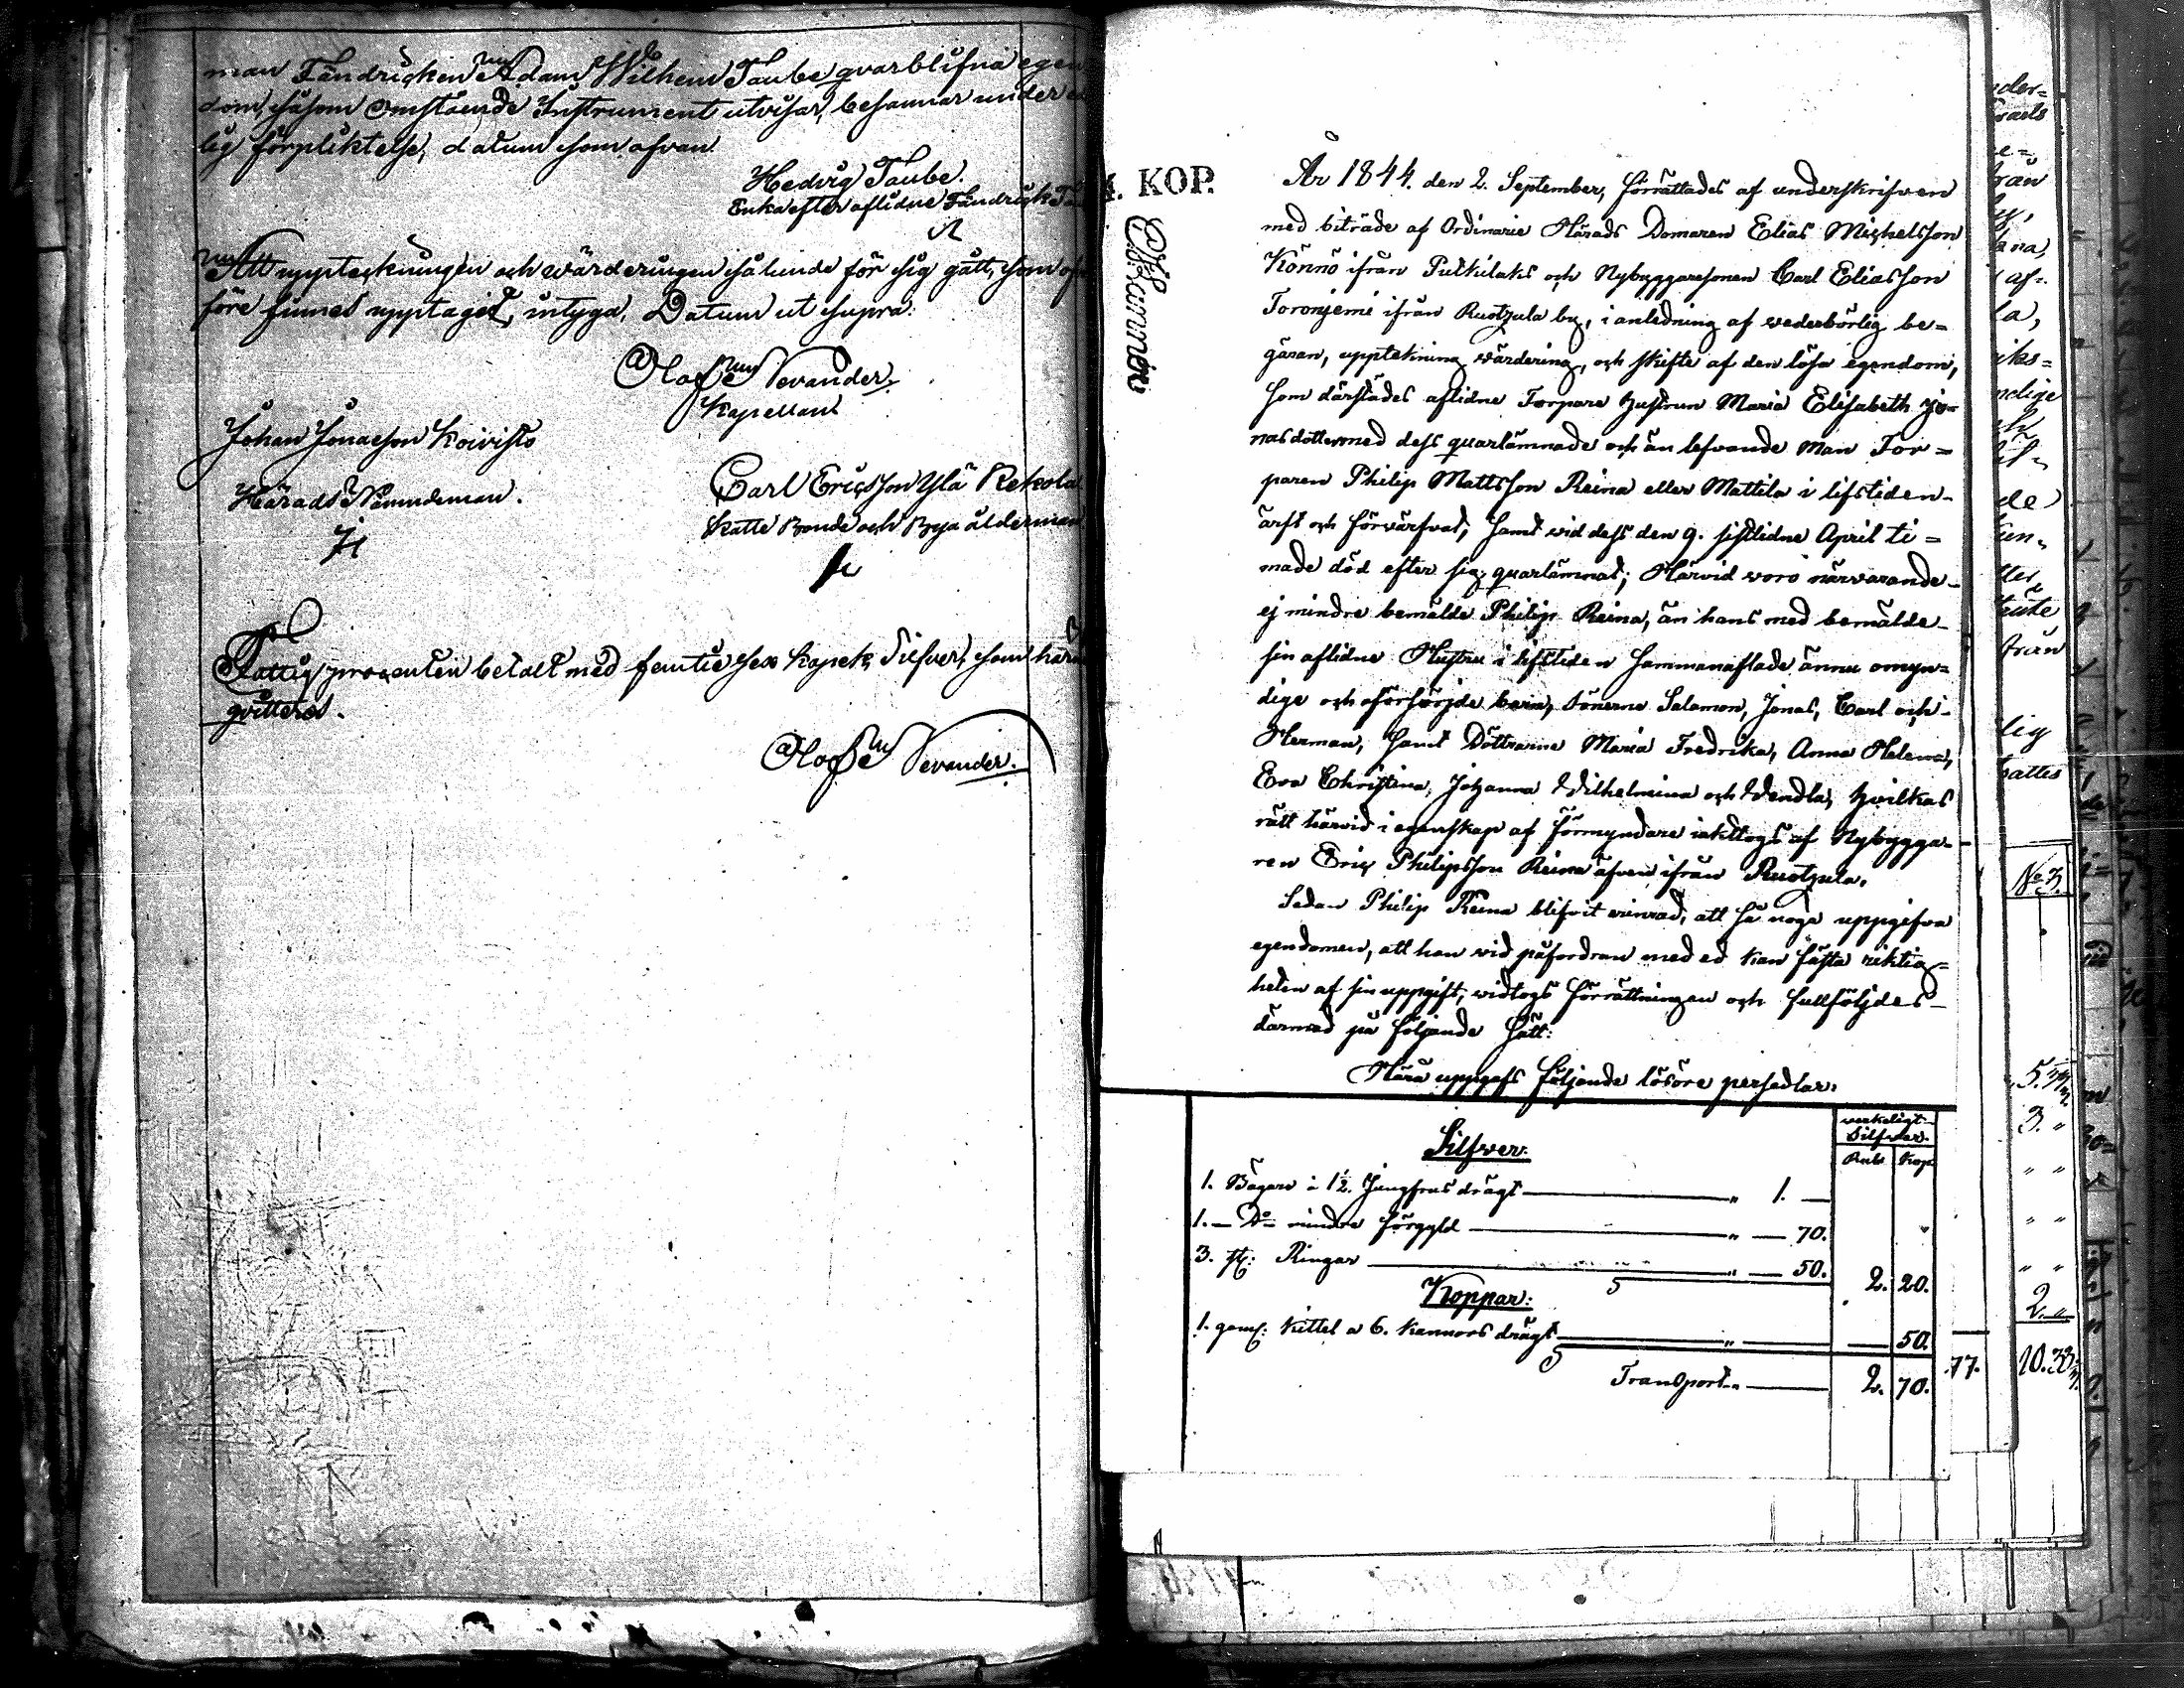 man Fändricken Adam Wilhem Taube qvarblifna egen
dom, såsom omstående Instrument utvisar, besannar under
lig förpliktelse, datum som ofvan
Hedvig Taube.
Enka efter aflidne Fändrick
Att uppteckningen och värderingen sålunda för sig gått, som
före finnes upptaget, intyga, Datum ut supra:
Olof Nevander.
Kapellan
Johan Jonasson Koivisto
Härads Nämndeman.
Carl Ericsson Ylä Rekola
Skatte Bonde och Bya ålderman
Fattig procenten betalt med femtie sex kopek, Silfver, som
qvitteras.
Olof Nevander.
KOP.
År 1844. den 2. September, förrättades af underskrifven
med biträde af Ordinarie Härads Domaren Elias Michelsson
Könnö ifrån Pulkilaks och Nybyggaresonen Carl Eliasson
Toronjemi ifrån Ruotzula by, i anledning af wederbörlig be=
gäran, upptekning wärdering, och skifte af den lösa egendom,
som därstädes aflidne Torpare hustrun Maria Elisabeth Jo=
nasdotter med dess quarlämnade och än lefvande Man Tor=
paren Philip Mattsson Reina eller Mattila i lifstiden
ärft och förvärfvat, samt wid dess den 9. sistlidne April ti=
made död efter sig quarlämnat; Härvid woro närwarande
ej mindre bemälde Philip Reina, än hans med bemälde
sin aflidne Hustru i lifstiden sammanaflade ännu omyn=
dige och oförsörjde barn, sönerne Salomon, Jonas, Carl och
Herman, samt Döttrarne Maria Fredrika, Anna Helena,
Eva Christina, Johanna Wilhelmina och Wendla, hvilkas
rätt härvid i egenskap af förmyndare iakttogs af Nybygga=
ren Eric Philipsson Reina äfven ifrån Ruotzula.
Sedan Philip Reina blifvit erinrad, att så noga uppgifva
egendomen, att han wid påfordran med ed kan fästa riktig=
heten af sin uppgift, widtogs förrättningen och fullföljdes
därmed på följande sätt:
Håra uppgafs följande lösöre persedlar:
werkeligt
Silfver.
Rub Kop
Silfwer:
1. Bägare à 1½. Jungfrus drägt — " 1. —
1. — D:o mindre förgyld — " — 70.
3. st: Ringar — " — 50. 2. 20.
Koppar:
1. gam: kittel à 6. kannors drägt — " — 50.
Transport " — 2. 70.
No 3.
3. "
" "
" "
" "
2. "
77.